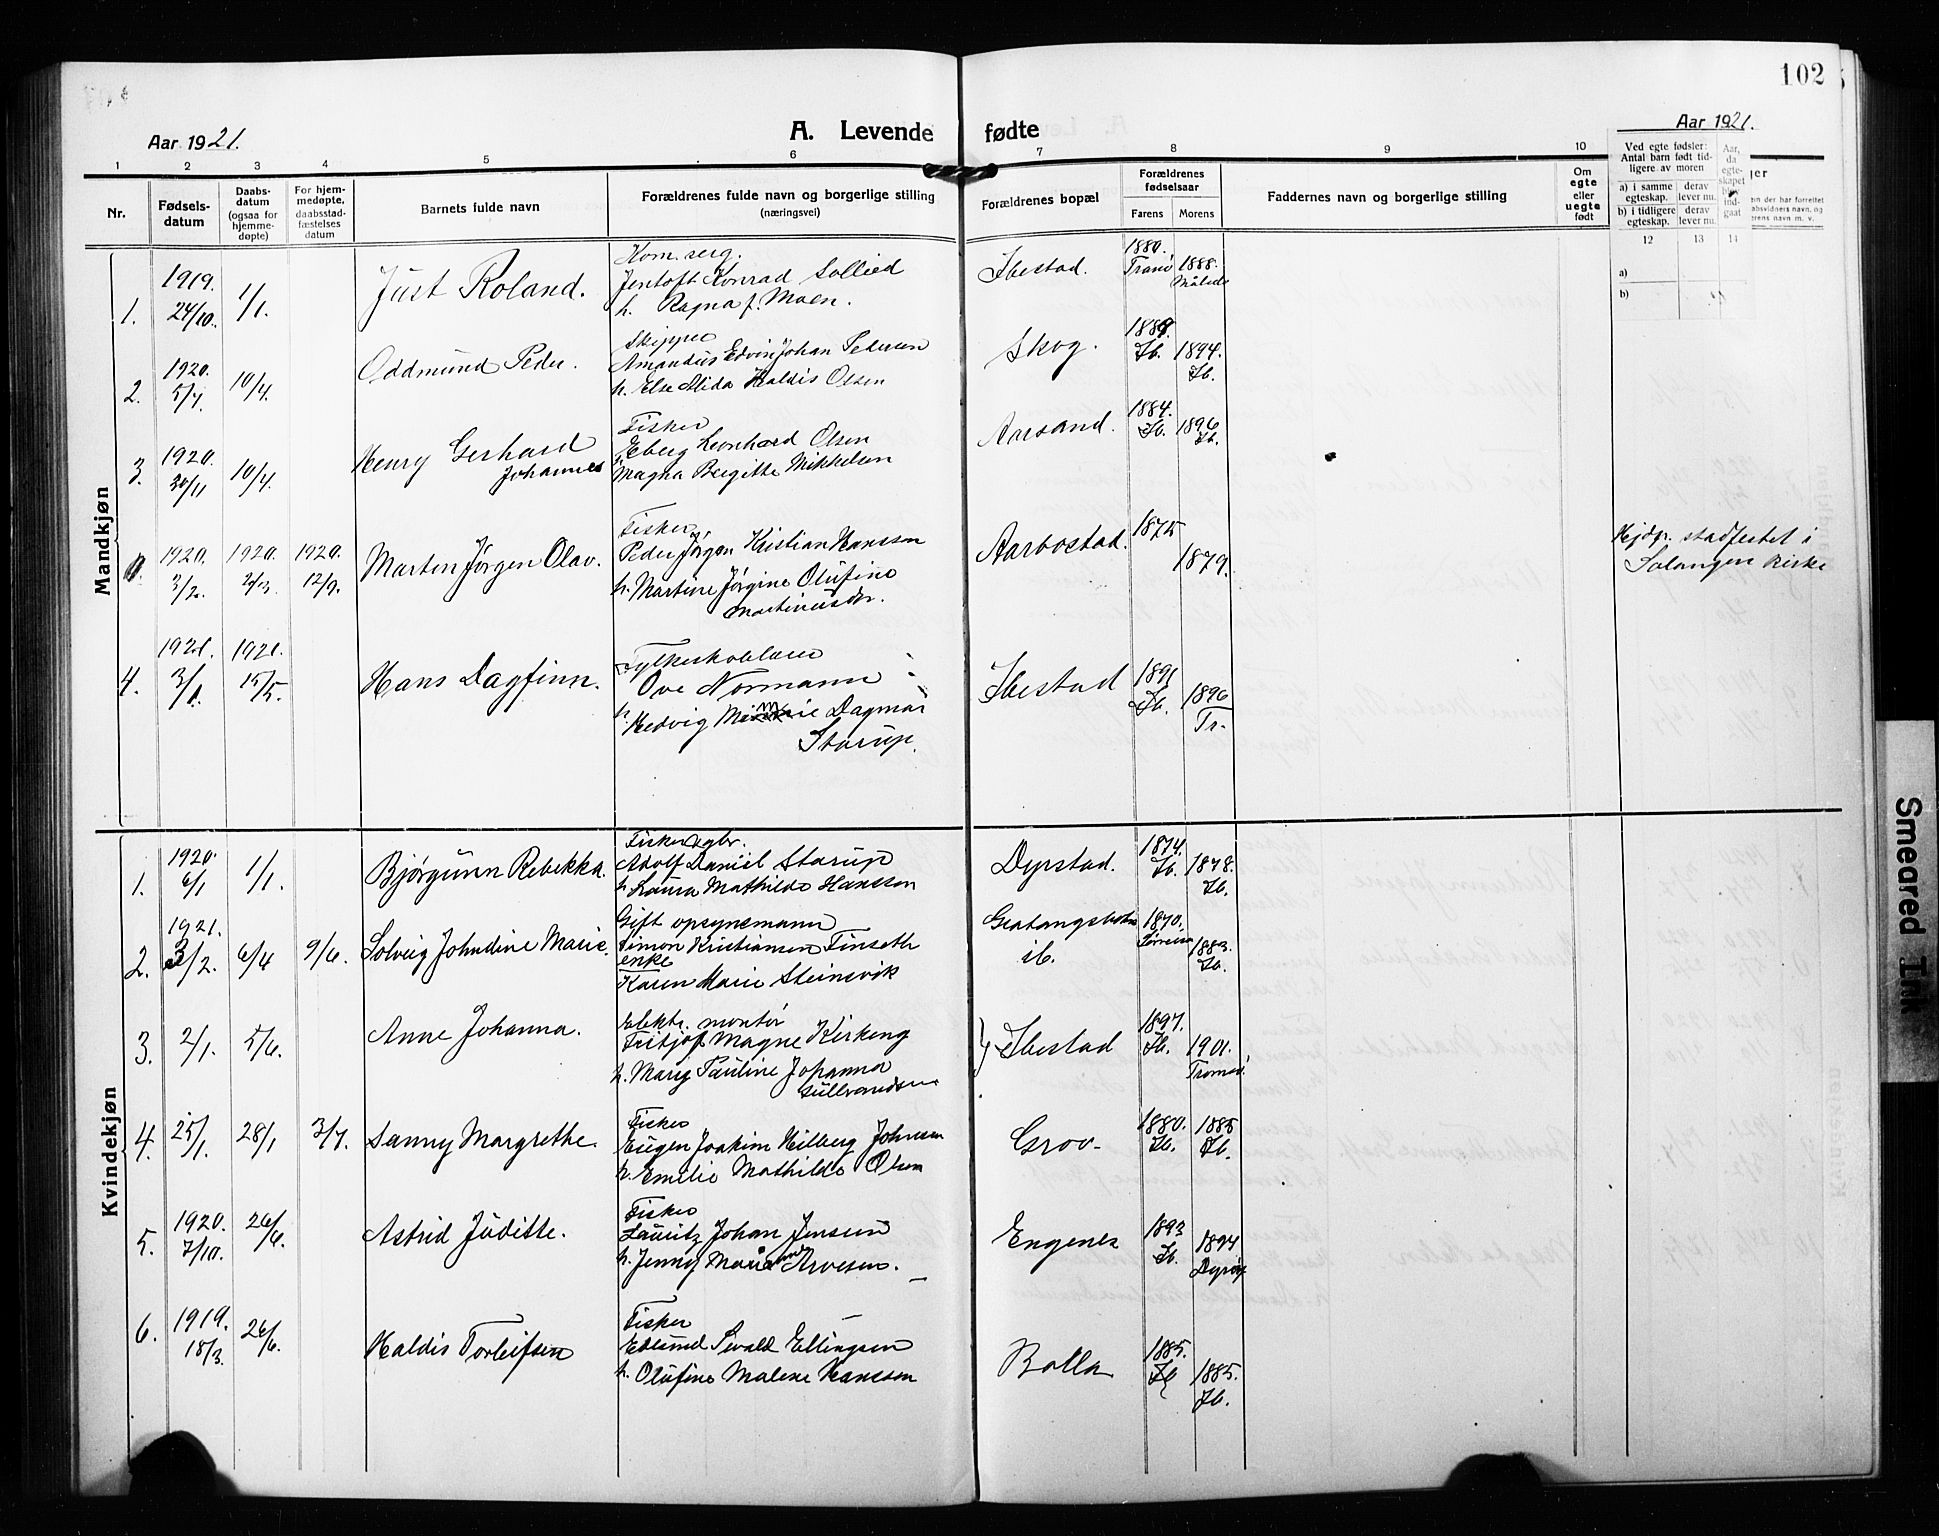 102
Aar 1921.
A. Levende fødte
Aar 1921.
1 2 3 4 5 6 7 8 9 10
Nr.
Fødsels-
datum
Daabs-
datum
(ogsaa for
hjemme-
døpte)
For hjem-
medøpte,
daabsstad-
fæstelses
datum
Barnets fulde navn
Forældrenes fulde navn og borgerlige stilling
(næringsvei)
Forældrenes bopæl
Forældrenes
fødselsaar
Farens Morens
Faddernes navn og borgerlige stilling
Om
egte
eller
uegte
født
Ved egte fødsler:
Antal barn født tid-
ligere av moren
a) i samme
egteskap.
derav
lever nu.
b) i tidligere
egteskap.
derav
lever nu.
Aar,
da
egte-
skapet
blev
ind-
gaat
12 13 14
a)
b)
Mandkjøn
1.
1919.
24/10.
1/1.
Just Roland.
Kom. serg.
Jentoft Konrad Sollied
h. Ragna f. Moen.
Ibestad.
1880.
Tranø
1888.
2.
1920.
5/4.
10/4.
Oddmund Peder.
Skipper
Amandus Edvin Johan Pedersen
h. Else Alida Haldis Olsen
Skog.
Ib.
1894.
Ib.
3.
1920.
30/11
10/4.
Henry Gerhard
Johannes
Fisker
Eberg Leonhard Olsen
Magna Bergitte Mikkelsen
Aarsand.
1884.
Ib.
1896
Ib.
1920.
3/2.
1920.
1920.
12/9.
Marten Jørgen Olav.
Fisker
Peder Jørgen Kristian Hanssen
h. Martine Jørgine Olufine
Martinusdr.
Aarbostad.
1875
1879.
Hjdp. stadfestet i
Salangen kirke
4.
1921.
3/1.
1921.
15/5.
Hans Dagfinn.
Fylkeskolelærer
Ove Normann
h. Hedvig Dagmar
Starup.
Ibestad
1891
Ib.
1896
Tr.
Kvindekjøn
1.
1920.
6/1
1/1.
Bjørgunn Rebekka.
Fisker gbr.
Adolf Daniel Starup
h. Laura Mathilde Hanssen
Dyrstad.
1874.
Ib.
1878.
Ib.
2.
1921.
3/2.
6/4
9/6.
Solveig Johndine Marie.
Gift opsynsmann
Simon Kristiansen Finseth
enke
Karen Marie Steinsvik
ib.
1870.
Sørreisa
1883.
Ib.
3.
2/1.
5/6.
Anne Johanna.
Elektr. montør
Fritjof Magne Kirkeng
h. Mary Pauline Johanna
Gulbrandsen
Ibestad
1897.
Ib.
1901.
Tromsø.
4.
25/1.
28/1
3/7.
Sanny Margrethe.
Fisker
Eugen Joakim Hilberg Johnsen
h. Emelie Mathilde Olsen
Grov.
1880.
Ib.
1885
Ib.
5.
1920.
7/10.
26/6.
Astrid Juditte.
Fisker
Lauritz Johan Jensen
h. Jenny Arvesen.
Engenes
1893
Ib.
1894
Dyrøy
6.
1919.
18/3.
26/6.
Haldis Torleifsen
Fisker
Edlund Sevald Ellingsen
h. Olufine Malene Hanssen
Bolla
1885.
Ib
1885.
Ib.
Smeared Ink